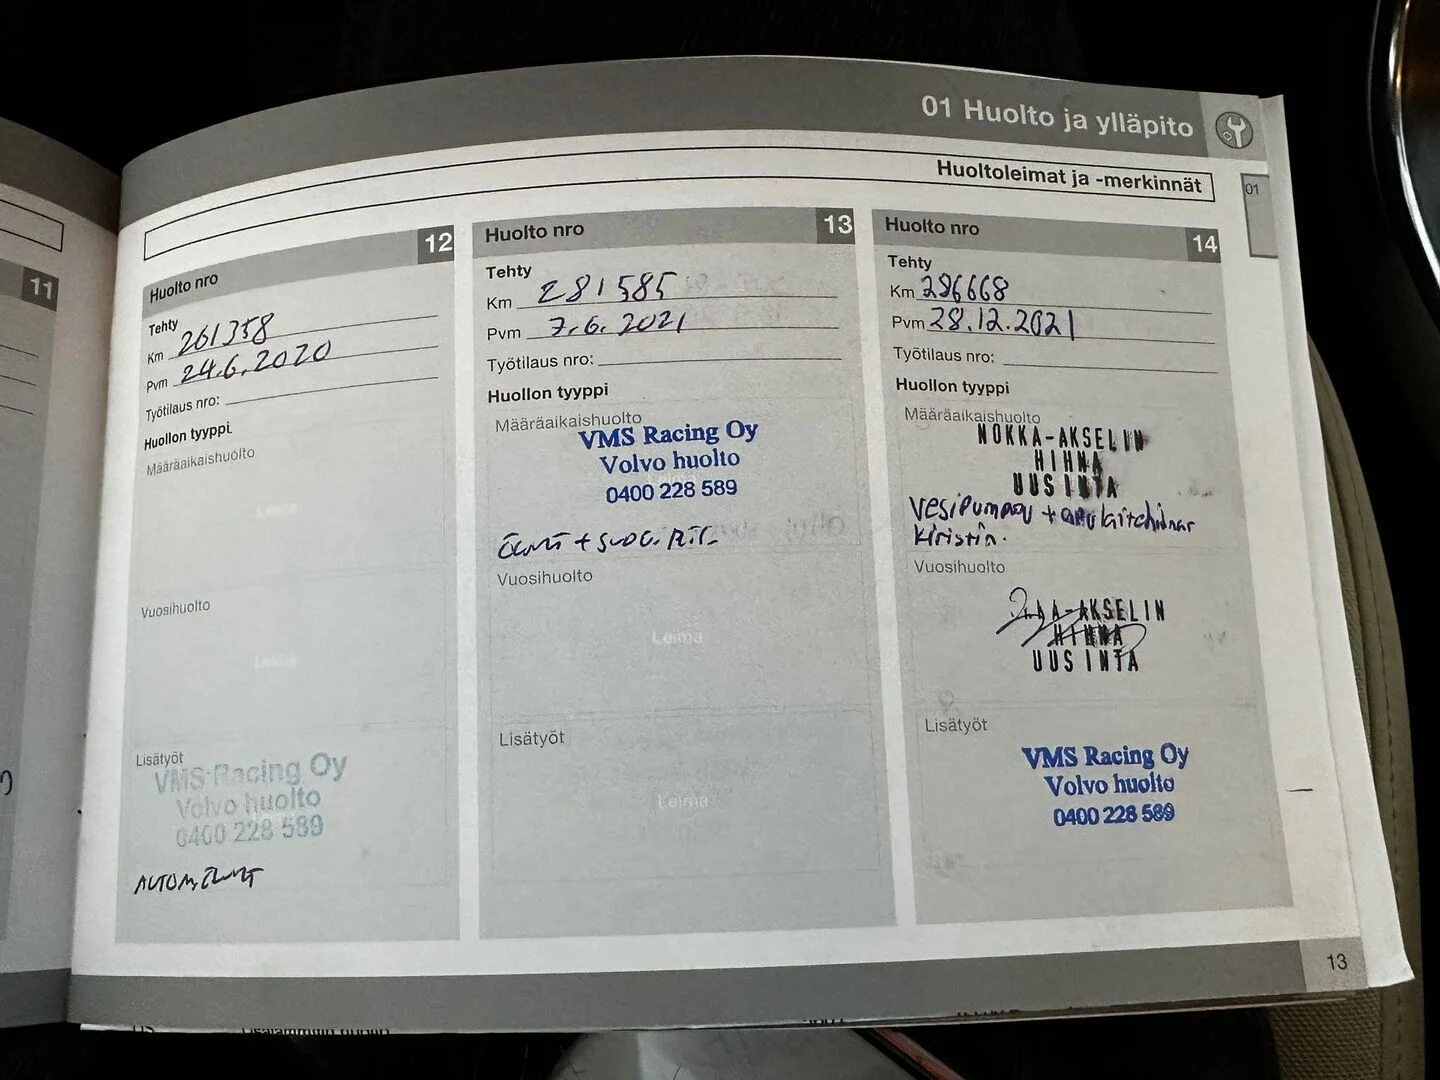 01 Huolto ja ylläpito
Huoltoleimat ja -merkinnät
01
11
Huolto nro 12
Tehty
Km 261358
Pvm 24.6.2020
Työtilaus nro:
Huollon tyyppi
Määräaikaishuolto
Leima
Vuosihuolto
Leima
Lisätyöt
VMS Racing Oy
Volvo huolto
0400 228 589
Huolto nro 13
Tehty
Km 281585
Pvm 7.6.2021
Työtilaus nro:
Huollon tyyppi
Määräaikaishuolto
VMS Racing Oy
Volvo huolto
0400 228 589
Vuosihuolto
Leima
Lisätyöt
Leima
Huolto nro 14
Tehty
Km 286668
Pvm 28.12.2021
Työtilaus nro:
Huollon tyyppi
Määräaikaishuolto
NOKKA-AKSELIN
HIHNA
UUSINTA
Vesipumppu + apulaitehihnan
kiristin.
Vuosihuolto
AKSELIN
HIHNA
UUSINTA
Lisätyöt
VMS Racing Oy
Volvo huolto
0400 228 589
13